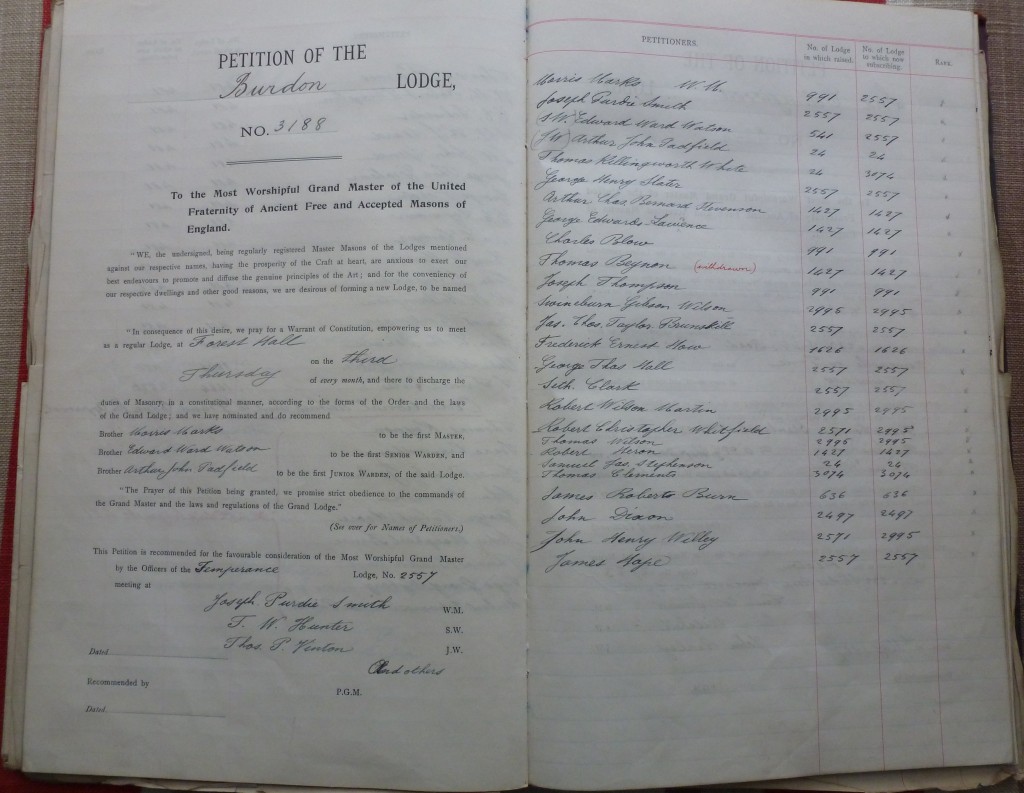 PETITION OF THE
Burdon LODGE,
NO. 3188
To the Most Worshipful Grand Master of the United
Fraternity of Ancient Free and Accepted Masons of
England.
"WE, the undersigned, being regularly registered Master Masons of the Lodges mentioned
against our respective names, having the prosperity of the Craft at heart, are anxious to exert our
best endeavours to promote and diffuse the genuine principles of the Art; and for the conveniency of
our respective dwellings and other good reasons, we are desirous of forming a new Lodge, to be named
"In consequence of this desire, we pray for a Warrant of Constitution, empowering us to meet
as a regular Lodge, at Forest Hall
on the third
Thursday of every month, and there to discharge the
duties of Masonry, in a constitutional manner, according to the forms of the Order and the laws
of the Grand Lodge; and we have nominated and do recommend
Brother Morris Marks to be the first MASTER,
Brother Edward Ward Watson to be the first SENIOR WARDEN, and
Brother Arthur John Padfield to be the first JUNIOR WARDEN, of the said Lodge.
"The Prayer of this Petition being granted, we promise strict obedience to the commands of
the Grand Master and the laws and regulations of the Grand Lodge."
(See over for Names of Petitioners.)
This Petition is recommended for the favourable consideration of the Most Worshipful Grand Master
by the Officers of the Temperance Lodge, No. 2557
meeting at
Joseph Purdie Smith W.M.
T. W. Hunter S.W.
Thos. P. Vinton J.W.
Dated
And others
Recommended by P.G.M.
Dated
PETITIONERS. No. of Lodge in which raised. No. of Lodge in which now subscribing. RANK.
Morris Marks W.M. 991 2557
Joseph Purdie Smith 2557 2557
(SW) Edward Ward Watson 541 2557
(JW) Arthur John Padfield 24 24
Thomas Killingworth White 24 3074
George Henry Slater 2557 2557
Arthur Chas. Bernard Stevenson 1427 1427
George Edwards Lawrence 1427 1427
Charles Blow 991 991
Thomas Beynon (withdrawn) 1427 1427
Joseph Thompson 991 991
Swineburn Gibson Wilson 2995 2995
Jas. Thos. Taylor Brunskill 2557 2557
Frederick Ernest How 1626 1626
George Thos Hall 2557 2557
Seth. Clark 2557 2557
Robert Wilson Martin 2995 2995
Robert Christopher Whitfield 2571 2995
Thomas Wilson 2995 2995
Robert Heron 1427 1427
Samuel Jas. Stephenson 24 24
Thomas Clements 3074 3074
James Roberts Burn 636 636
John Dixon 2497 2497
John Henry Willey 2571 2995
James Hope 2557 2557